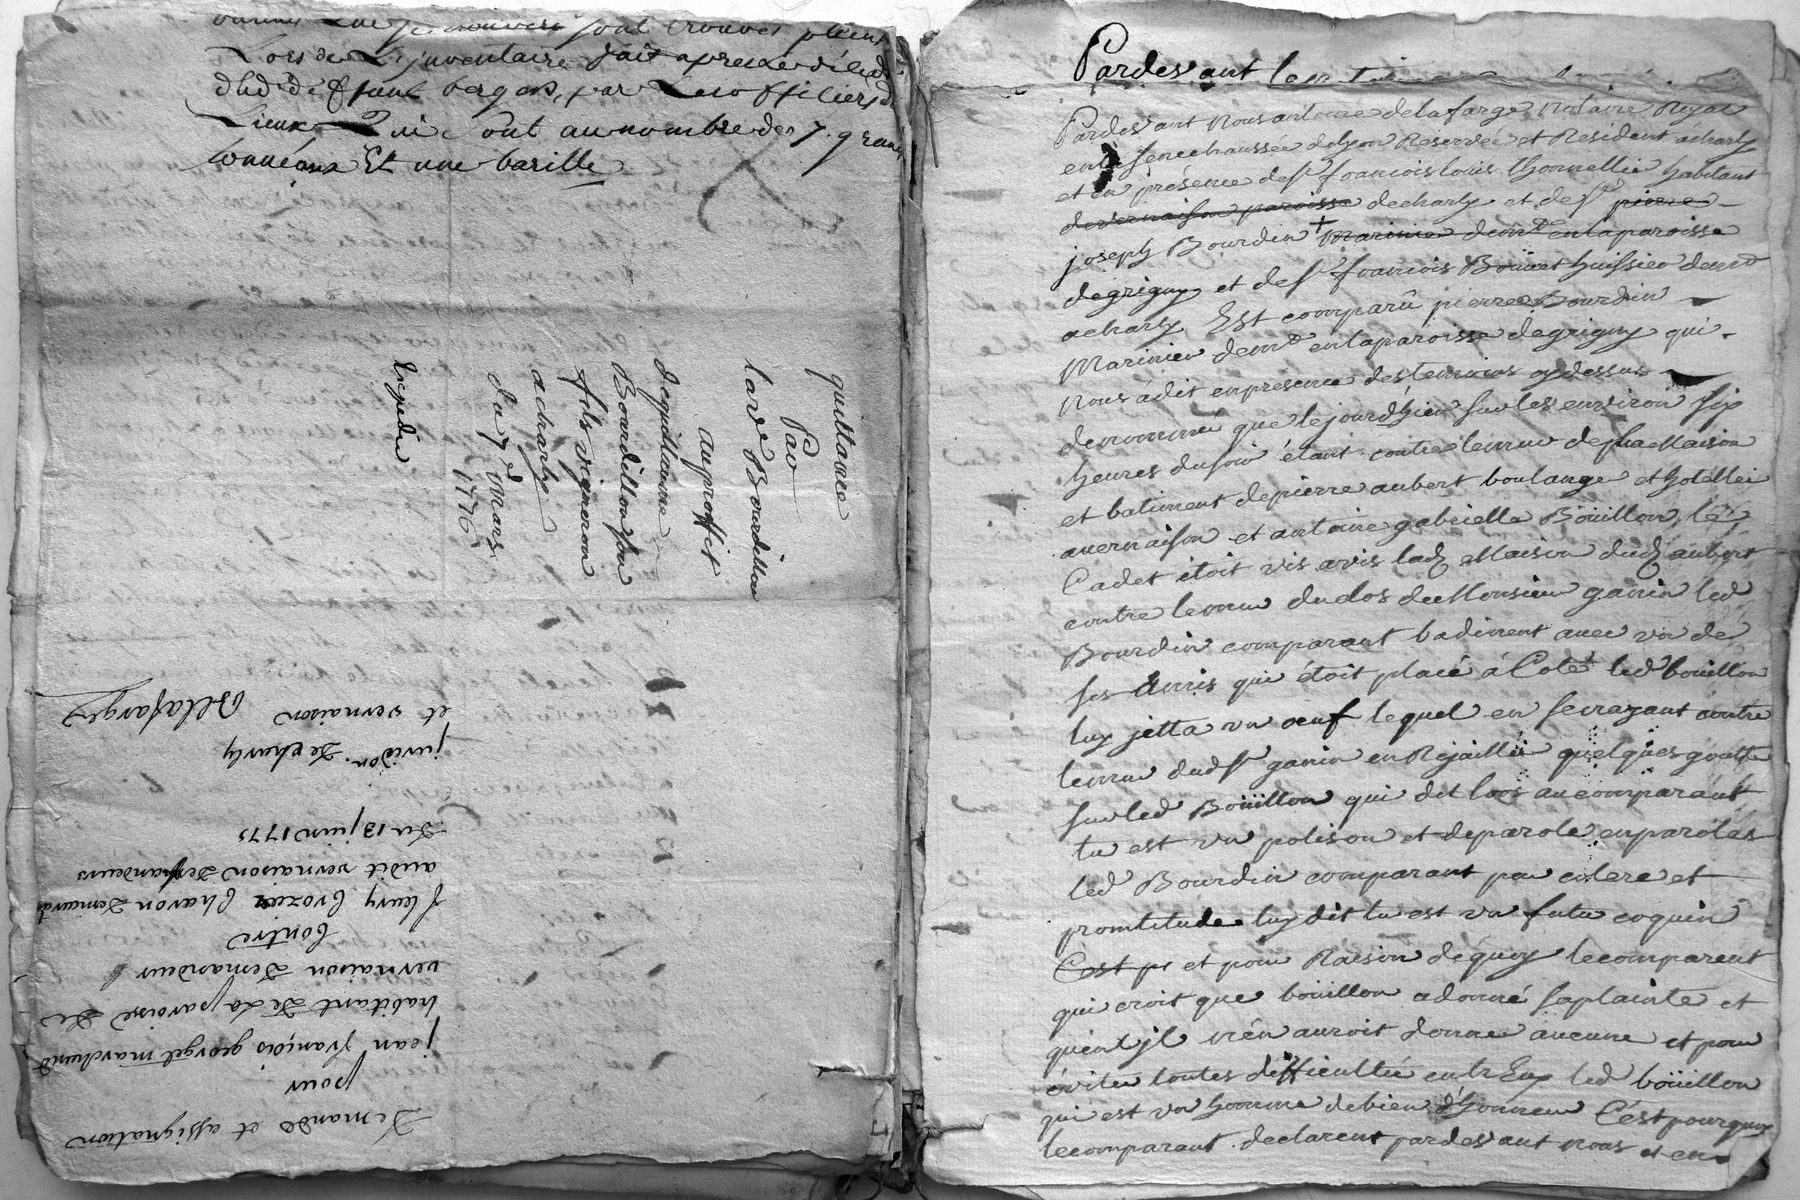 sont trouvés pleins
Lors de L'jnventaire fait apres le déces
dud. deffunt berger, par Les officiers des
Lieux Qui Sont au nombre de 7. grands
tonnéaux Et une barille
quittance
Par
la ve Bourdillon
au proffit
de guillaume
Bourdillon son
fils vigneron
a charly
du 7e mars
1776
Expedié
Demande et assignation
pour
jean françois georget marchand
habitant De La paroisse De
vernaison Demandeur
Contre
fleury Crozier Charon Demeurant
audit vernaison Deffandeurs
Du 13 juin 1775
juridon. De charly
et vernaison
Delafarge
Pardevant
Pardevant Nous antoine delafarge Notaire Royal
en la senechaussée de lyon Reservée et Resident a charly
et en présence de sr. francois louis thonnellier habitant
de vernaison paroisse de charly et de sr pierre
joseph Bourdin + marinier demt en la paroisse
de grigny et de sr francois Bonnet huissier demt
a charly Est comparû pierre Bourdin
Marinier demt en la paroisse de grigny qui
Nous à dit en presence des temoins cy dessus
denommé que le jourdhier sur les environ six
heures du soir étant contre le mur de sa Maison
et batiment de pierre aubert boulanger et hotellier
a vernaison et antoine gabrielle Boüillon, le
Cadet étoit vis avis lad. Maison dud. aubert
contre le mur du clos de Monsieur ganin led
Bourdin comparant badinent avec un de
ses Amis qui étoit placé à Coté led bouillon
luy jetta un oeuf lequel en secrazant contre
le mur dud sr ganin en Rejaillit quelques goutte
sur led Boüillon qui dit lors au comparant
tu est un polison et de parole en paroles
led Bourdin comparant par colere et
promtitude luy dit tu est un futu coquin
C'est pr et pour Raison de quoy le comparent
qui croit que boüillon a donné sa plainte et
quent jl n'en auroit donné aucune et pour
éviter toutes difficultée entr Eux led boüillon
qui est un homme de bien d'honneur C'est pourquoy
le comparant declarent pardevant nous et en